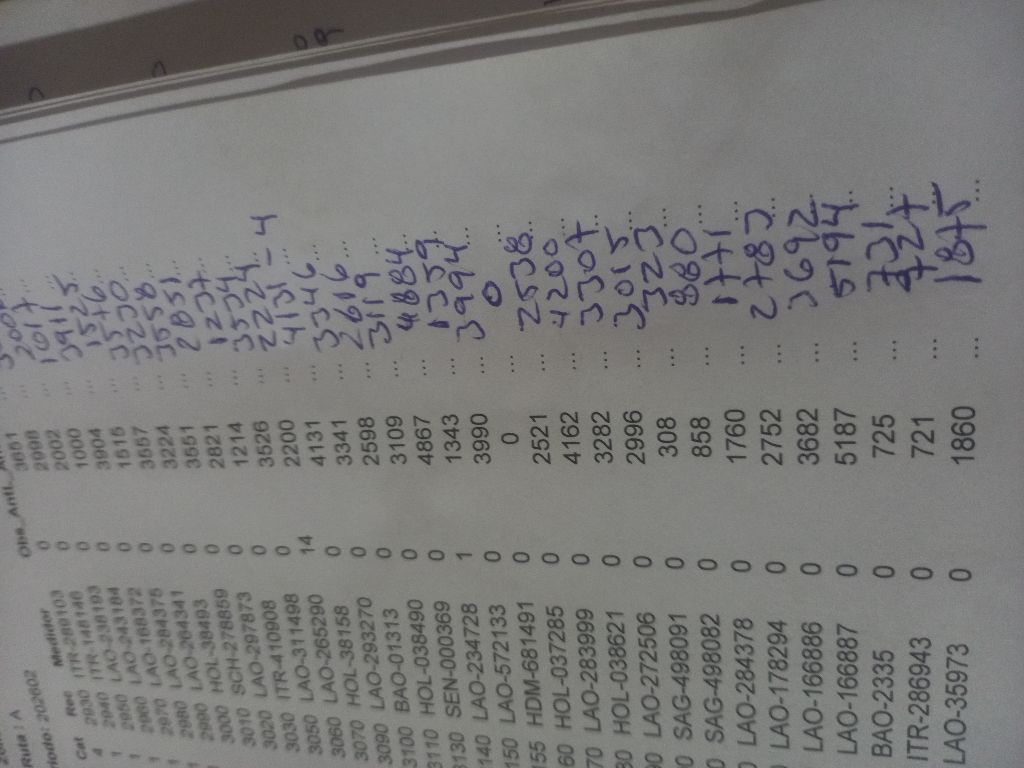 Ruta : A
Periodo: 202602
Cat Rec Medidor Obs_Anti_
4 2930 ITR-289103 0 3651
1 2940 ITR-148146 0 2998 ...
1 2950 0 2002 ... 1017
1 2960 LAO-243184 0 1000 ...
1 2970 LAO-168372 0 3904 ... 3911
1 2980 LAO-284375 0 1515 ... 1525
2990 LAO-264341 0 3557 ... 3576
3000 HOL-38493 0 3224 ... 3230
3010 SCH-278859 0 3551 ... 3558
3020 LAO-297873 0 2821 ... 2851
3030 ITR-410908 0 1214 ... 1237
3050 LAO-311498 0 3526 ... 3534
3060 LAO-265290 14 2200 ... 2224 - 4
3070 HOL-38158 0 4131 ... 4131
3090 LAO-293270 0 3341 ... 3346
3100 BAO-01313 0 2598 ... 2616
3110 HOL-038490 0 3109 ... 3119
3130 SEN-000369 0 4867 ... 4884
140 LAO-234728 1 1343 ... 1359
150 LAO-572133 0 3990 ... 3994
155 HDM-681491 0 0 ... 0 ...
60 HOL-037285 0 2521 ... 2538
70 LAO-283999 0 4162 ... 4200
80 HOL-038621 0 3282 ... 3307
0 LAO-272506 0 2996 ... 3015
0 SAG-498091 0 308 ... 323
0 SAG-498082 0 858 ... 880 ...
LAO-284378 0 1760 ... 1771 ...
LAO-178294 0 2752 ... 2783 ...
LAO-166886 0 3682 ... 3692
LAO-166887 0 5187 ... 5194
BAO-2335 0 725 ... 731 ...
ITR-286943 0 721 ... 727
LAO-35973 0 1860 ... 1875 ...